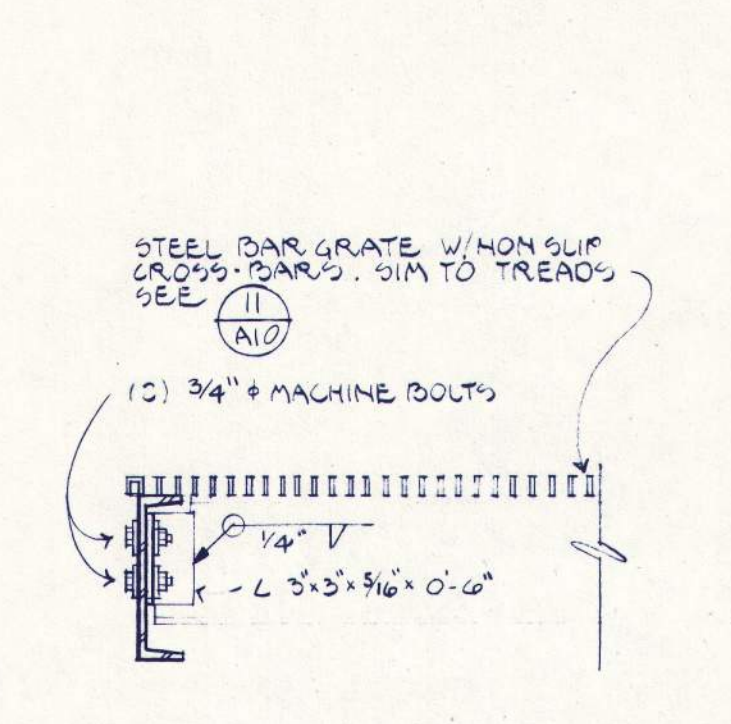 STEEL BAR GRATE W/NON SLIP
CROSS-BARS. SIM TO TREADS
SEE
11
A10
3/4" ϕ MACHINE BOLTS
1/4"
L 3"x3"x5/16"x 0'-6"